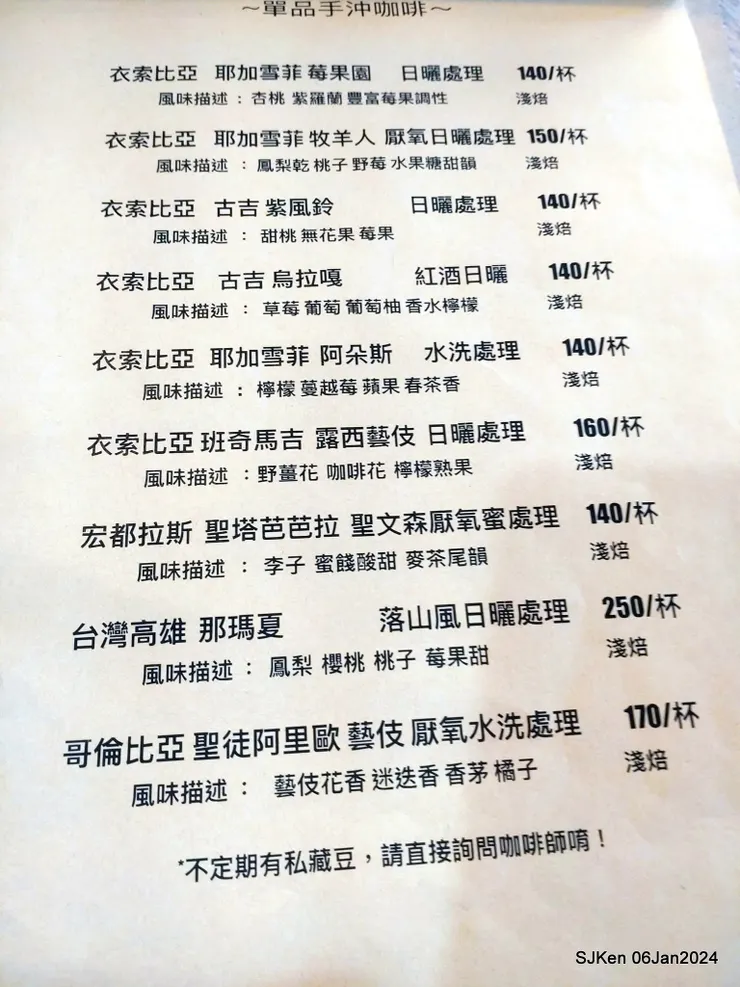 ～單品手沖咖啡～
衣索比亞 耶加雪菲 莓果園 日曬處理 140/杯
風味描述：杏桃 紫羅蘭 豐富莓果調性 淺焙
衣索比亞 耶加雪菲 牧羊人 厭氧日曬處理 150/杯
風味描述：鳳梨乾 桃子 野莓 水果糖甜韻 淺焙
衣索比亞 古吉 紫風鈴 日曬處理 140/杯
風味描述：甜桃 無花果 莓果 淺焙
衣索比亞 古吉 烏拉嘎 紅酒日曬 140/杯
風味描述：草莓 葡萄 葡萄柚 香水檸檬 淺焙
衣索比亞 耶加雪菲 阿朵斯 水洗處理 140/杯
風味描述：檸檬 蔓越莓 蘋果 春茶香 淺焙
衣索比亞 班奇馬吉 露西藝伎 日曬處理 160/杯
風味描述：野薑花 咖啡花 檸檬熟果 淺焙
宏都拉斯 聖塔芭芭拉 聖文森厭氧蜜處理 140/杯
風味描述：李子 蜜餞酸甜 麥茶尾韻 淺焙
台灣高雄 那瑪夏 落山風日曬處理 250/杯
風味描述：鳳梨 櫻桃 桃子 莓果甜 淺焙
哥倫比亞 聖徒阿里歐 藝伎 厭氧水洗處理 170/杯
風味描述：藝伎花香 迷迭香 香茅 橘子 淺焙
*不定期有私藏豆，請直接詢問咖啡師唷！
SJKen 06Jan2024